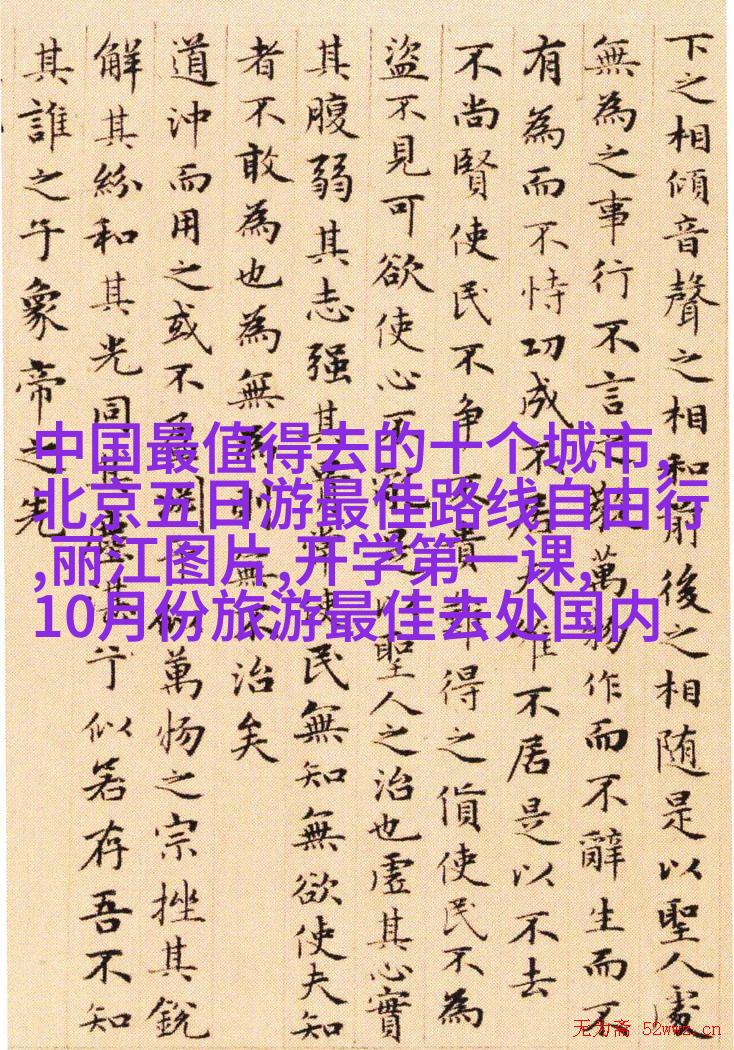 中国最值得去的十个城市,
北京五日游最佳路线自由行
,丽江图片,开学第一课,
10月份旅游最佳去处国内
下之相傾音聲之相和前後之相随是以聖人處
無為之事行不言之教萬物作而不辭生而不
有為而不恃功成不居夫唯不居是以不去
不尚賢使民不争不貴難得之貨使民不為
盜不見可欲使心不亂是以聖人之治也虛其心實
其腹弱其志强其骨常使民無知無欲使夫知
者不敢為也為無為則無不治矣
道沖而用之或不盈淵乎似萬物之宗挫其銳
解其紛和其光同其塵湛兮似若存吾不知
其誰之子象帝之先
无为斋 52wwz.cn